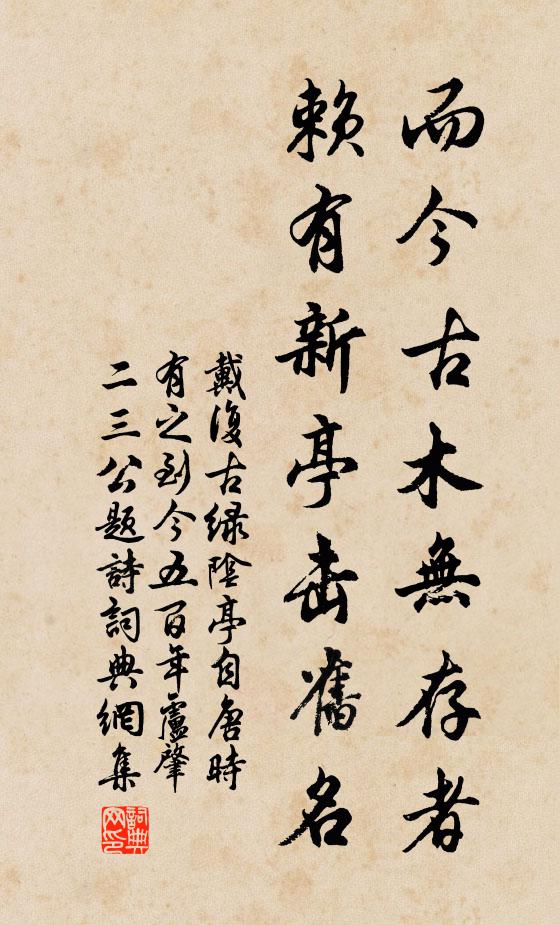 而今古木無存者
賴有新亭击舊名
戴復古緑陰亭自唐時
有之到今五百年盧肇
二三公題詩詞典網集
詞典
网印